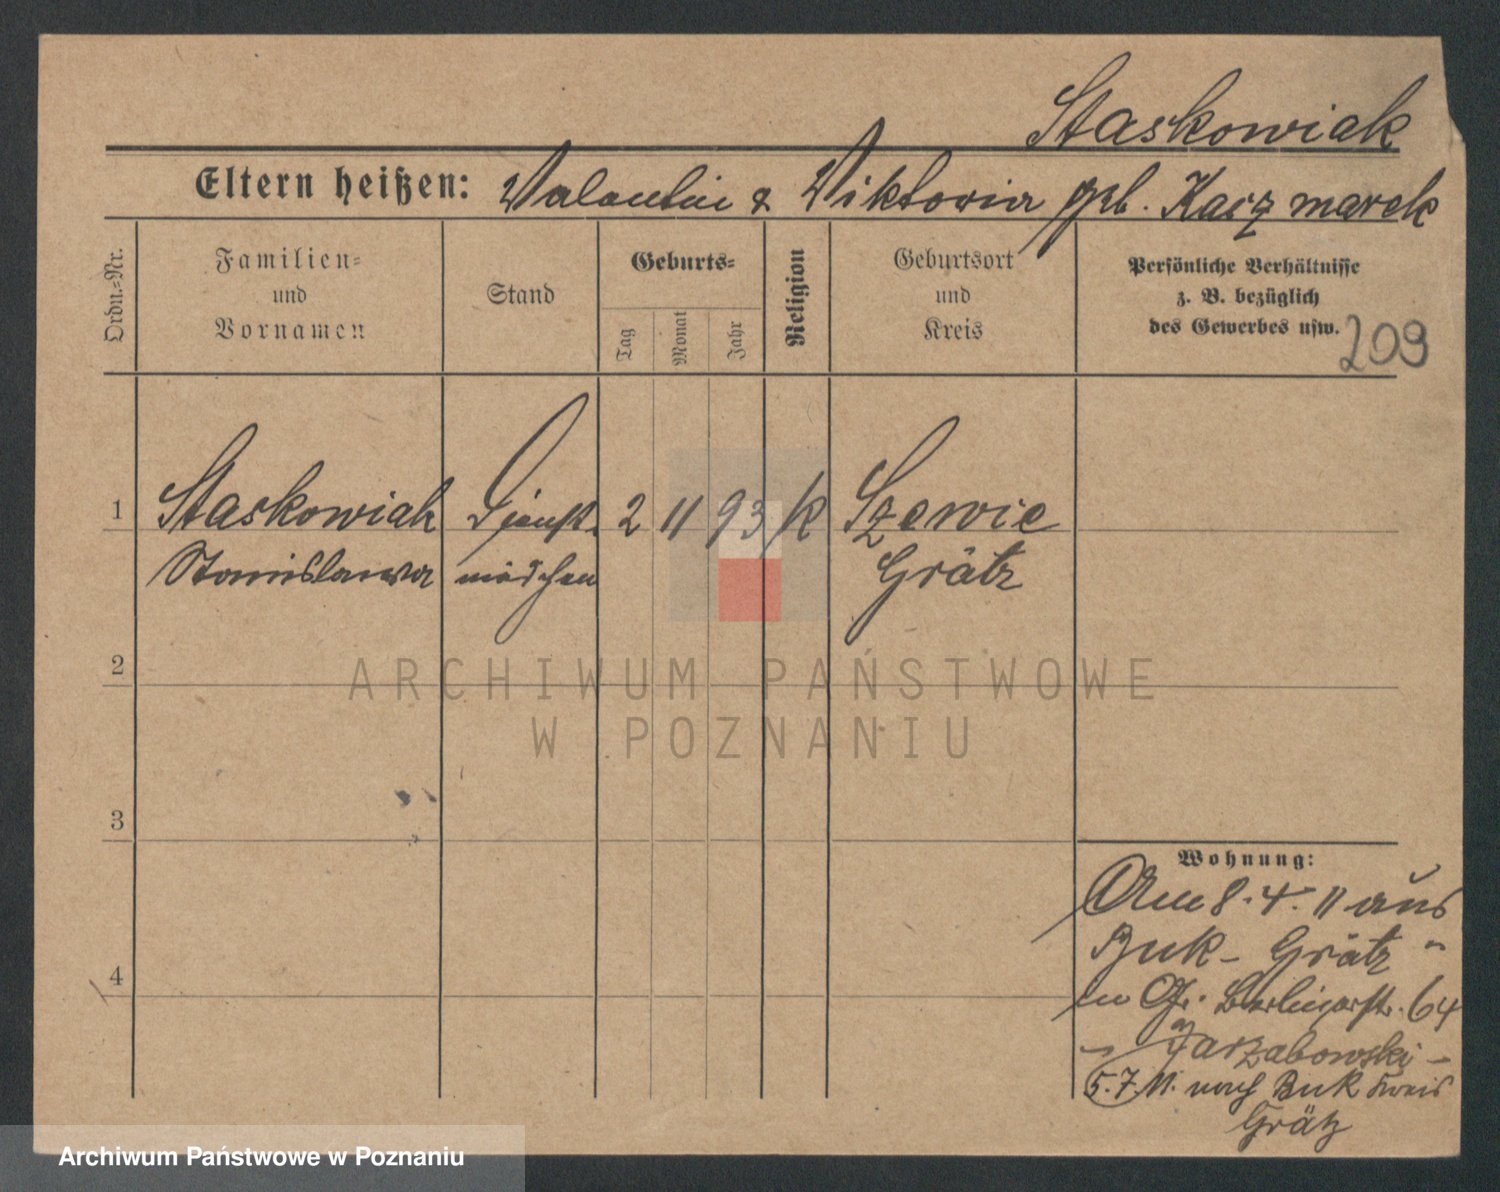 Staskowiak
Eltern heißen: Valentin & Viktoria geb. Kaczmarek
Ordn.-Nr.
Familien-
und
Vornamen
Stand
Geburts-
Tag
Monat
Jahr
Religion
Geburtsort
und
Kreis
Persönliche Verhältnisse
z. B. bezüglich
des Gewerbes usw.
209
1 Staskowiak Dienst- 2 11 93 k Szewie
Stanislawa mädchen Grätz
2
ARCHIWUM PAŃSTWOWE
W POZNANIU
3
Wohnung:
Am 8.4.11 aus
Buk - Grätz -
in Berlinerstr. 64
- Jarzabowski -
4
5.7.11. nach Buk Kreis
Grätz
Archiwum Państwowe w Poznaniu